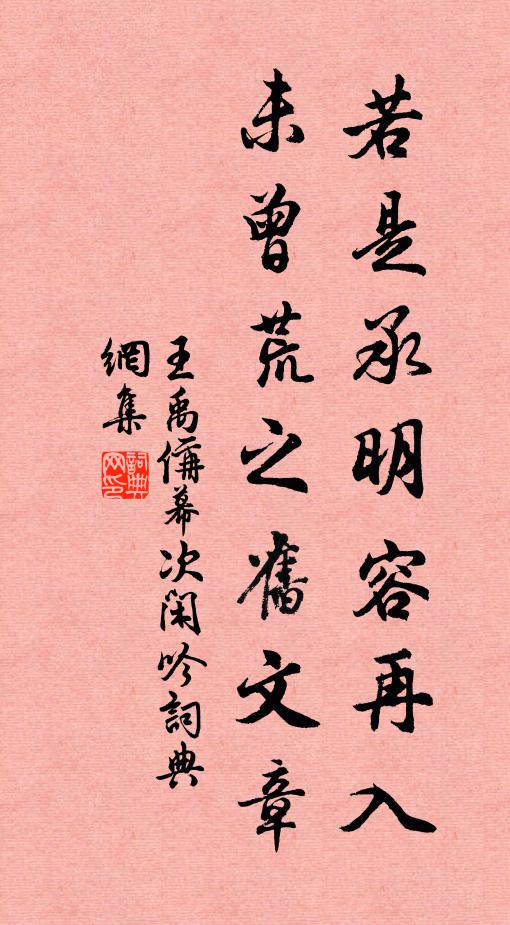 若是承明容再入
未曾荒之舊文章
王禹偁幕次閑吟詞典
網集
詞典網印